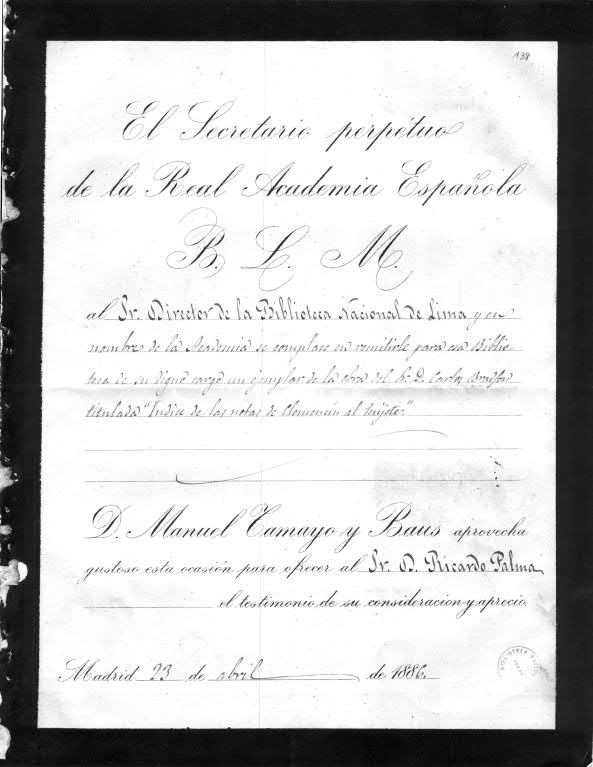 138
El Secretario perpétuo
de la Real Academia Española
B. L. M.
al Sr. Director de la Biblioteca Nacional de Lima y en
nombre de la Academia se complace en remitirle para esa Biblio-
teca de su digno cargo un ejemplar de la obra del Sr. D. Carlos Bradford
titulada "Indice de las notas de Clemencin al Quijote."
D. Manuel Tamayo y Baus aprovecha
gustoso esta ocasión para ofrecer al Sr. D. Ricardo Palma
el testimonio de su consideracion y aprecio.
Madrid 23 de abril de 1886.